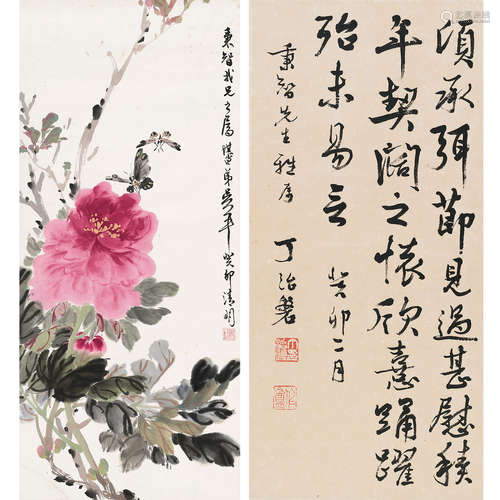 秉智我兄之属
弟吴平 癸卯清明
頃承弭節見過甚慰積
年契闊之懷欣憙踊躍
殆未易言
秉智先生雅属
癸卯二月
丁治磐